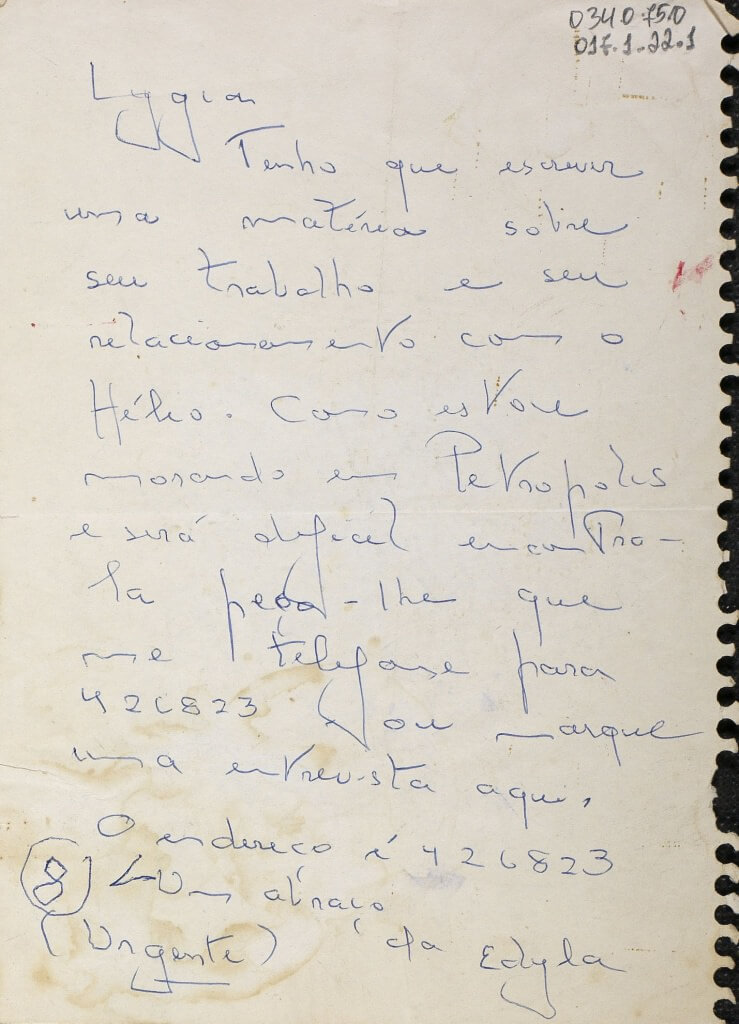 0340.75.0
017.1.22.1
Lygia
Tenho que escrever
uma matéria sobre
seu trabalho e seu
relacionamento com o
Hélio. Como estou
morando em Petropolis
e será dificil encontra-
la peço-lhe que
me telefone para
426823 ou marque
uma entrevista aqui.
O endereço é 426823
8 Um abraço
(Urgente) da Edyla